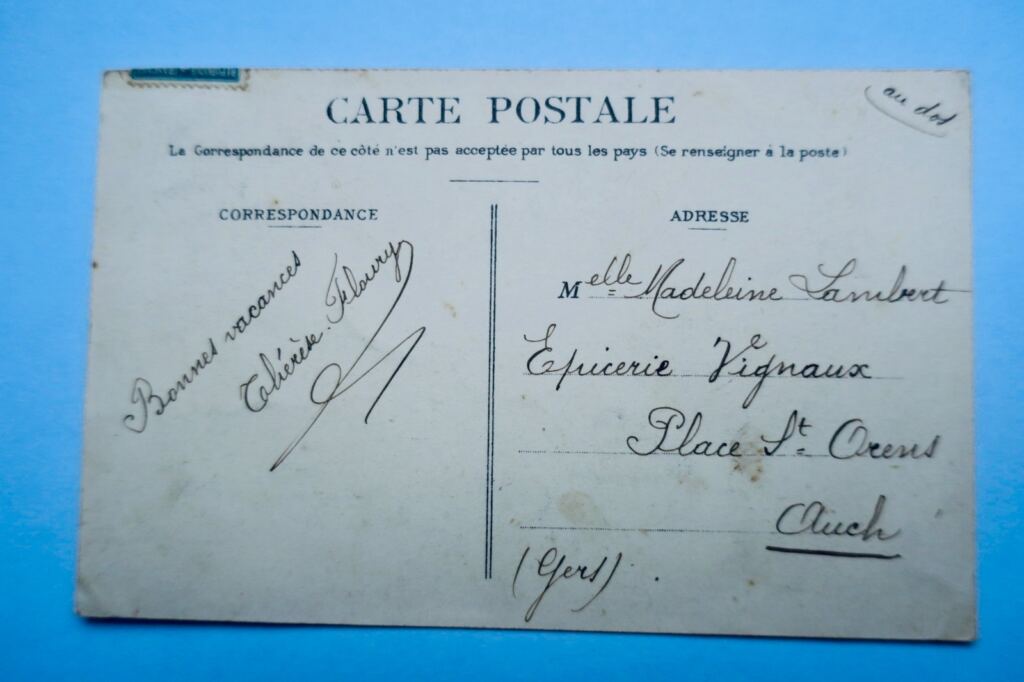 CARTE POSTALE
au dos
La Correspondance de ce côté n'est pas acceptée par tous les pays (Se renseigner à la poste)
CORRESPONDANCE
Bonnes vacances
Thérèse Fleury
ADRESSE
Melle Madeleine Lambert
Epicerie Vignaux
Place St Orens
Auch
(Gers).